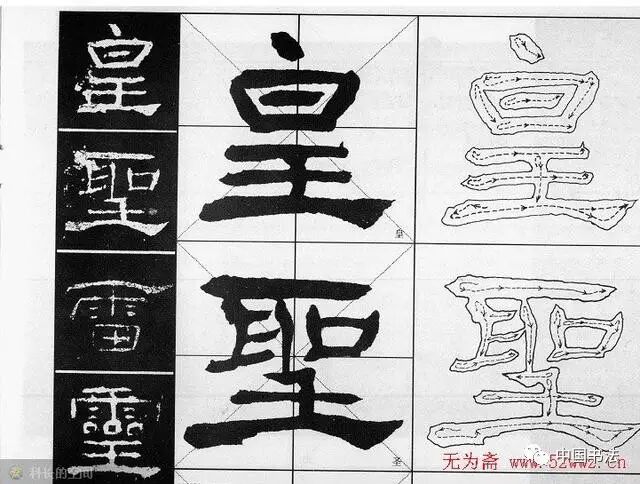 皇
聖
雷
靈
皇
皇
聖
圣
皇
聖
科长的空间
无为斋 www.52wwz.cn
中国书法